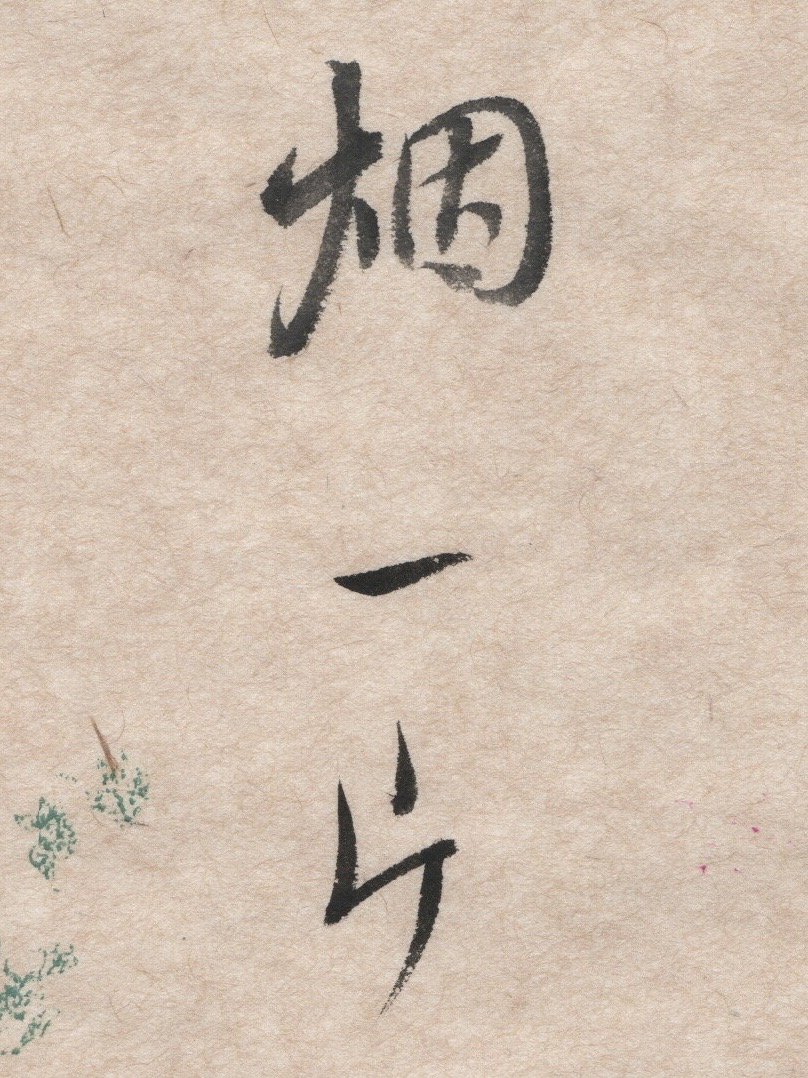 烟一片